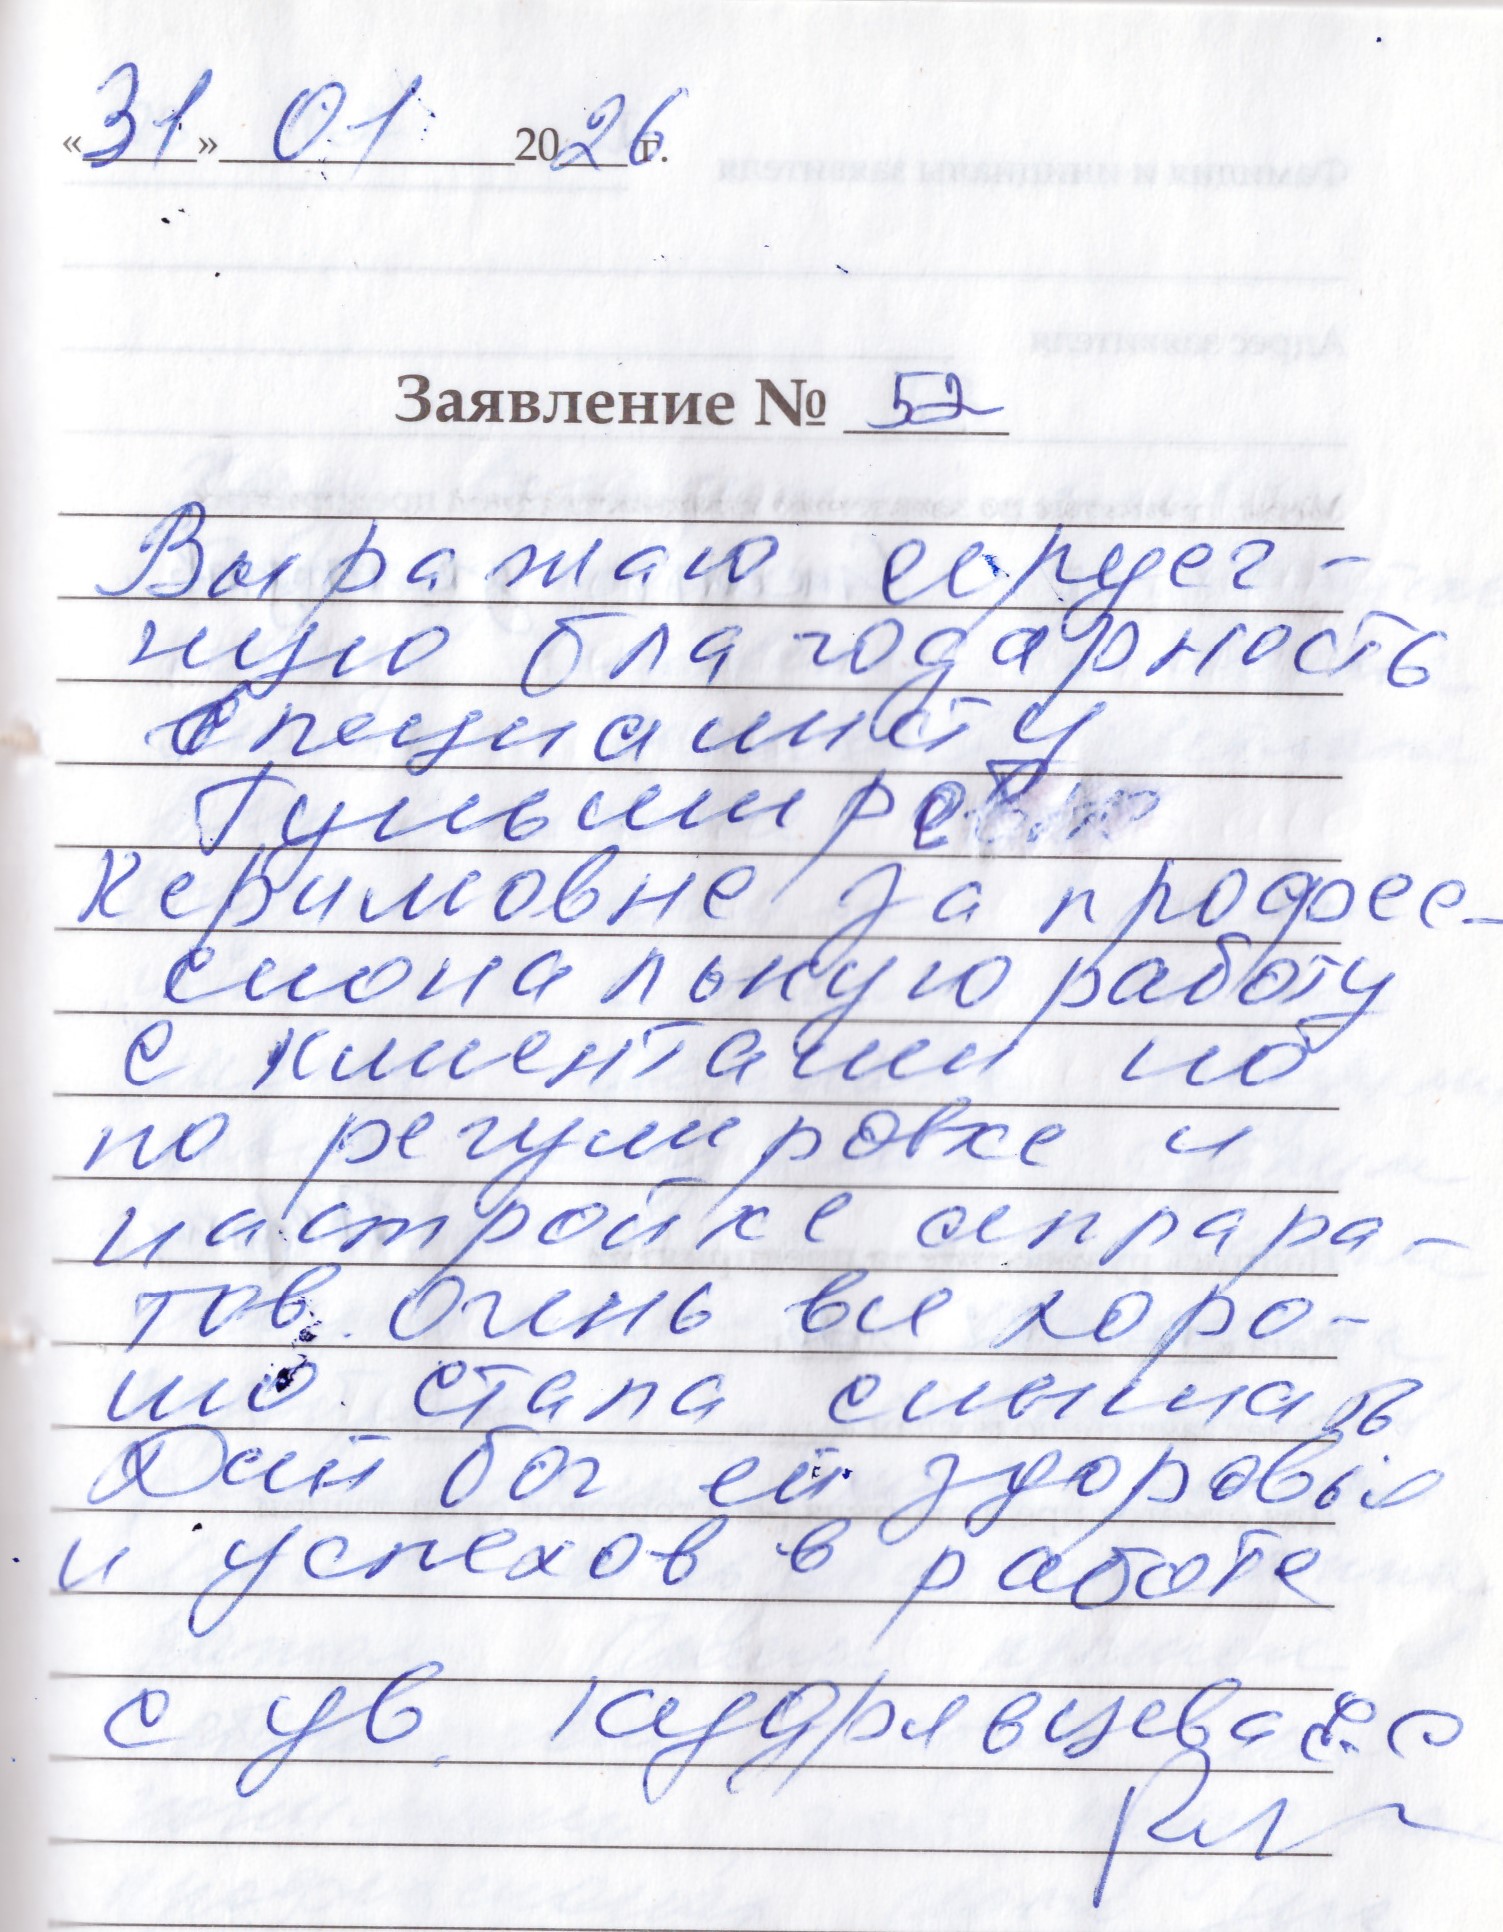 «31» 01 2026 г.
Заявление № 52
Выражаю сердеч-
ную благодарность
специалисту
Гульмире
Керимовне за професс-
сиональную работу
с клиентами по
по регулировке и
настройке аппара-
тов. Очень все хоро-
шо. стала слышать
Дай бог ей здоровья
и успехов в работе
с ув. Кудрявцева Е. С